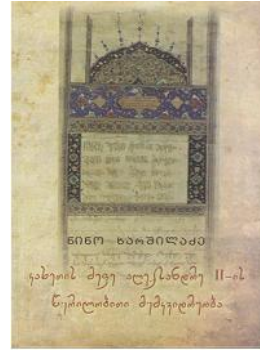 ნინო ხარშილაძე
კახეთის მეფე ალექსანდრე II-ის
წერილობითი მემკვიდრეობა